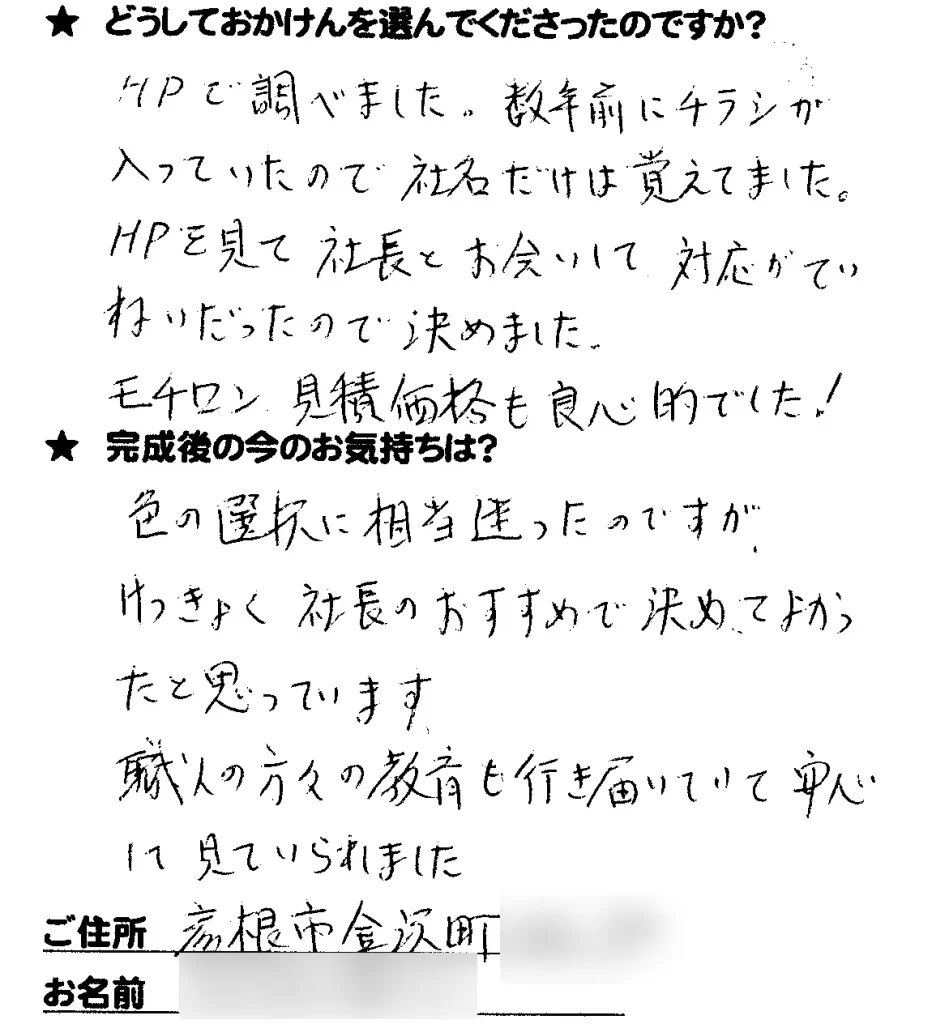 ★ どうしておかけんを選んでくださったのですか?
HPで調べました。数年前にチラシが
入っていたので社名だけは覚えてました。
HPを見て 社長とお会いして 対応がてい
ねいだったので決めました。
モチロン 見積価格も良心的でした!
★ 完成後の今のお気持ちは?
色の選択に相当迷ったのですが、
けっきょく 社長のおすすめで決めてよかっ
たと思っています。
職人の方々の教育も行き届いていて 安心
して見ていられました
ご住所 彦根市金沢町
お名前